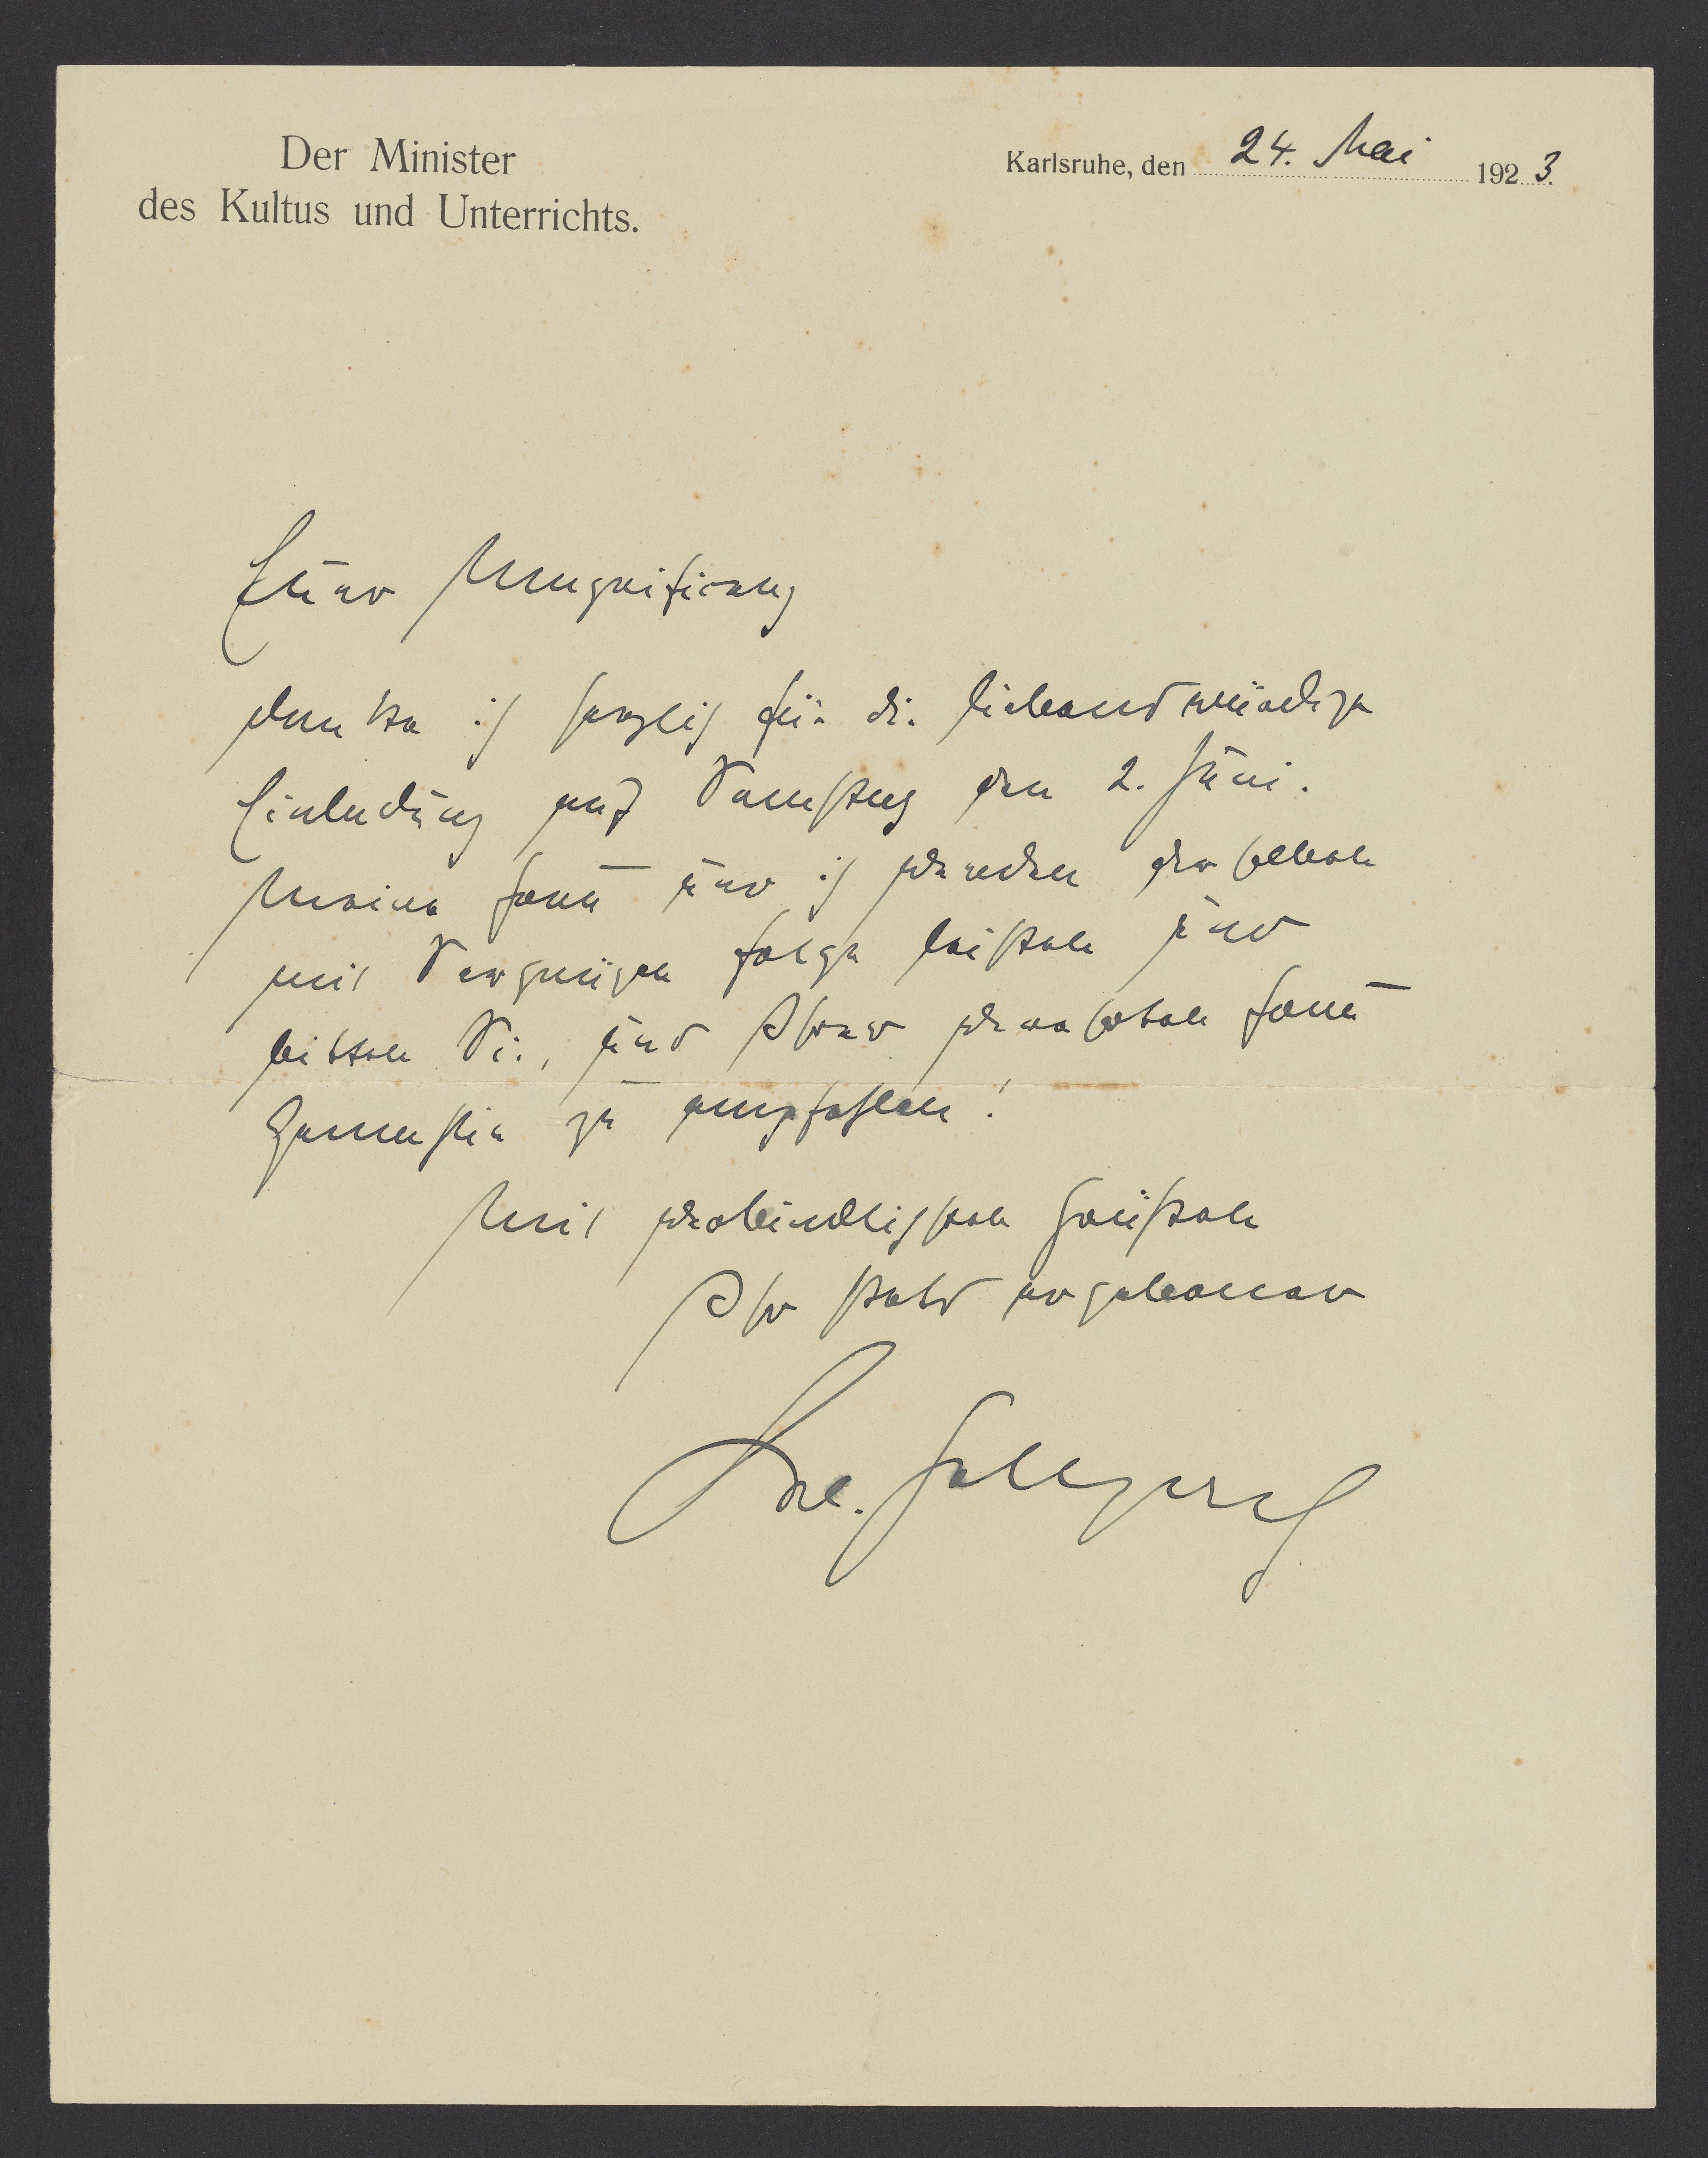 Der Minister
des Kultus und Unterrichts.
Karlsruhe, den 24. Mai 1923.
Euer Magnifizenz
danke ich herzlich für die liebenswürdige
Einladung auf Samstag den 2. Juni.
Meine Frau und ich werden derselben
mit Vergnügen Folge leisten und
bitten Sie, uns Ihrer verehrten Frau
Gemahlin zu empfehlen!
Mit verbindlichsten Grüßen
Ihr stets ergebener
Dr. Hellpach